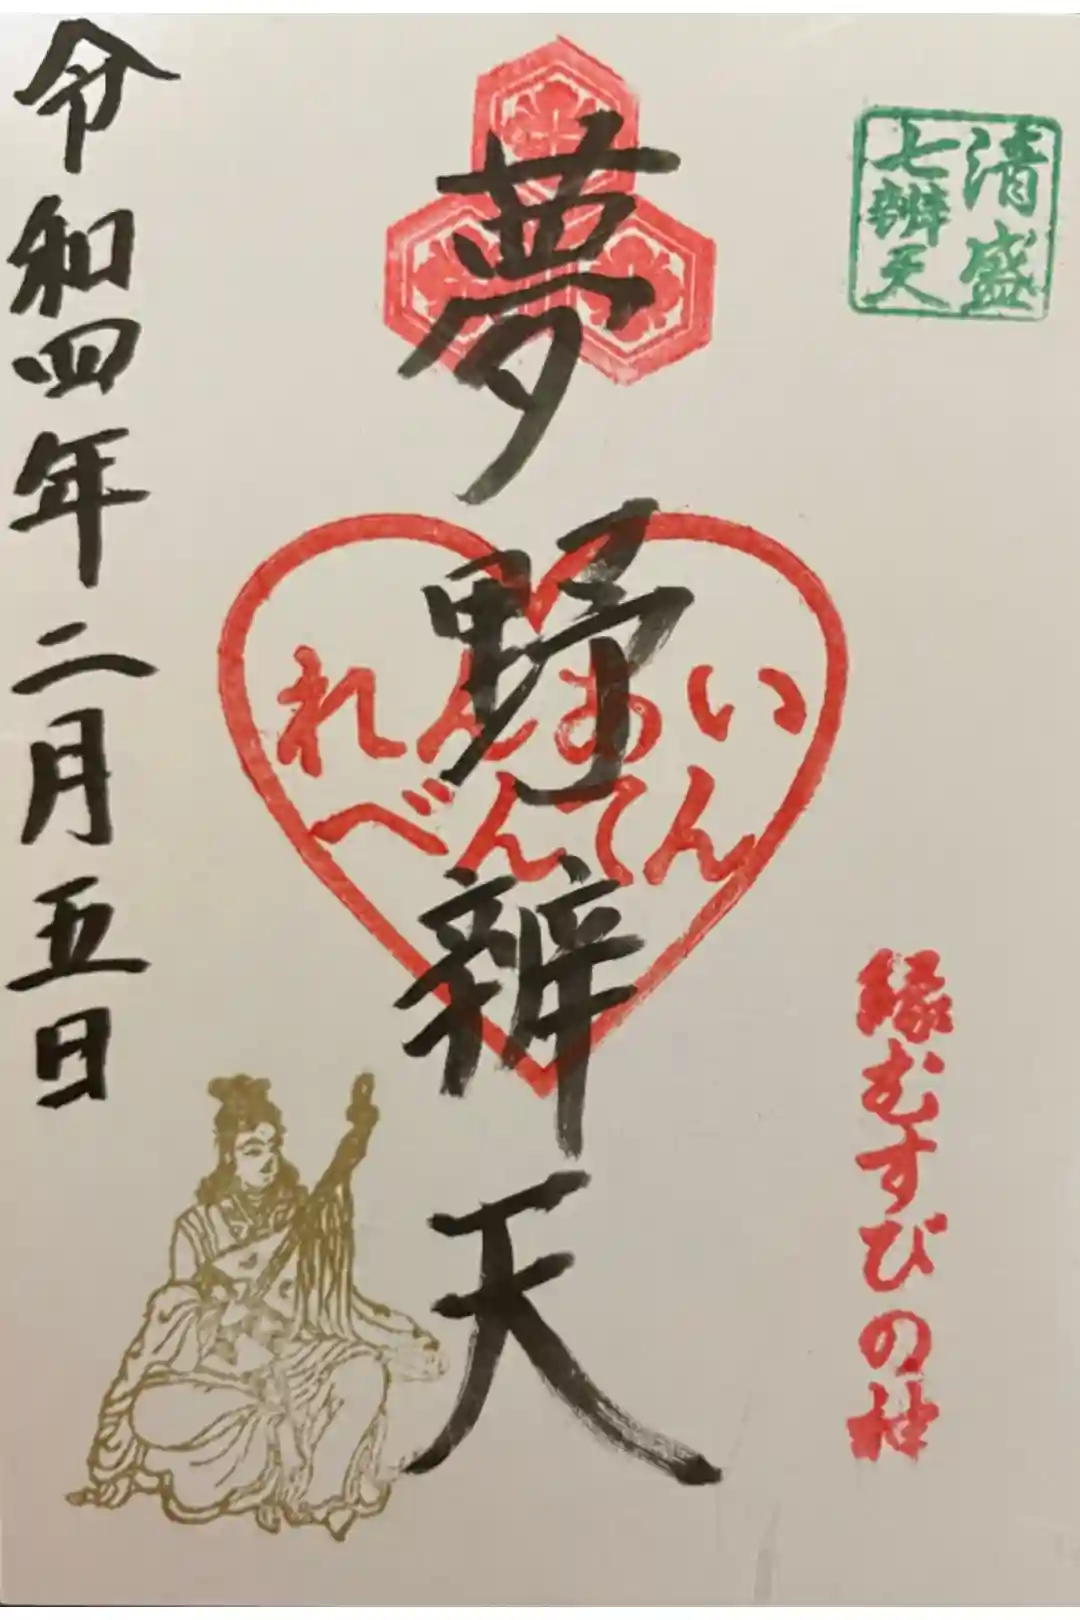 清盛
七辨天
縁むすびの神
夢野辨天
れんあい
べんてん
令和四年二月五日